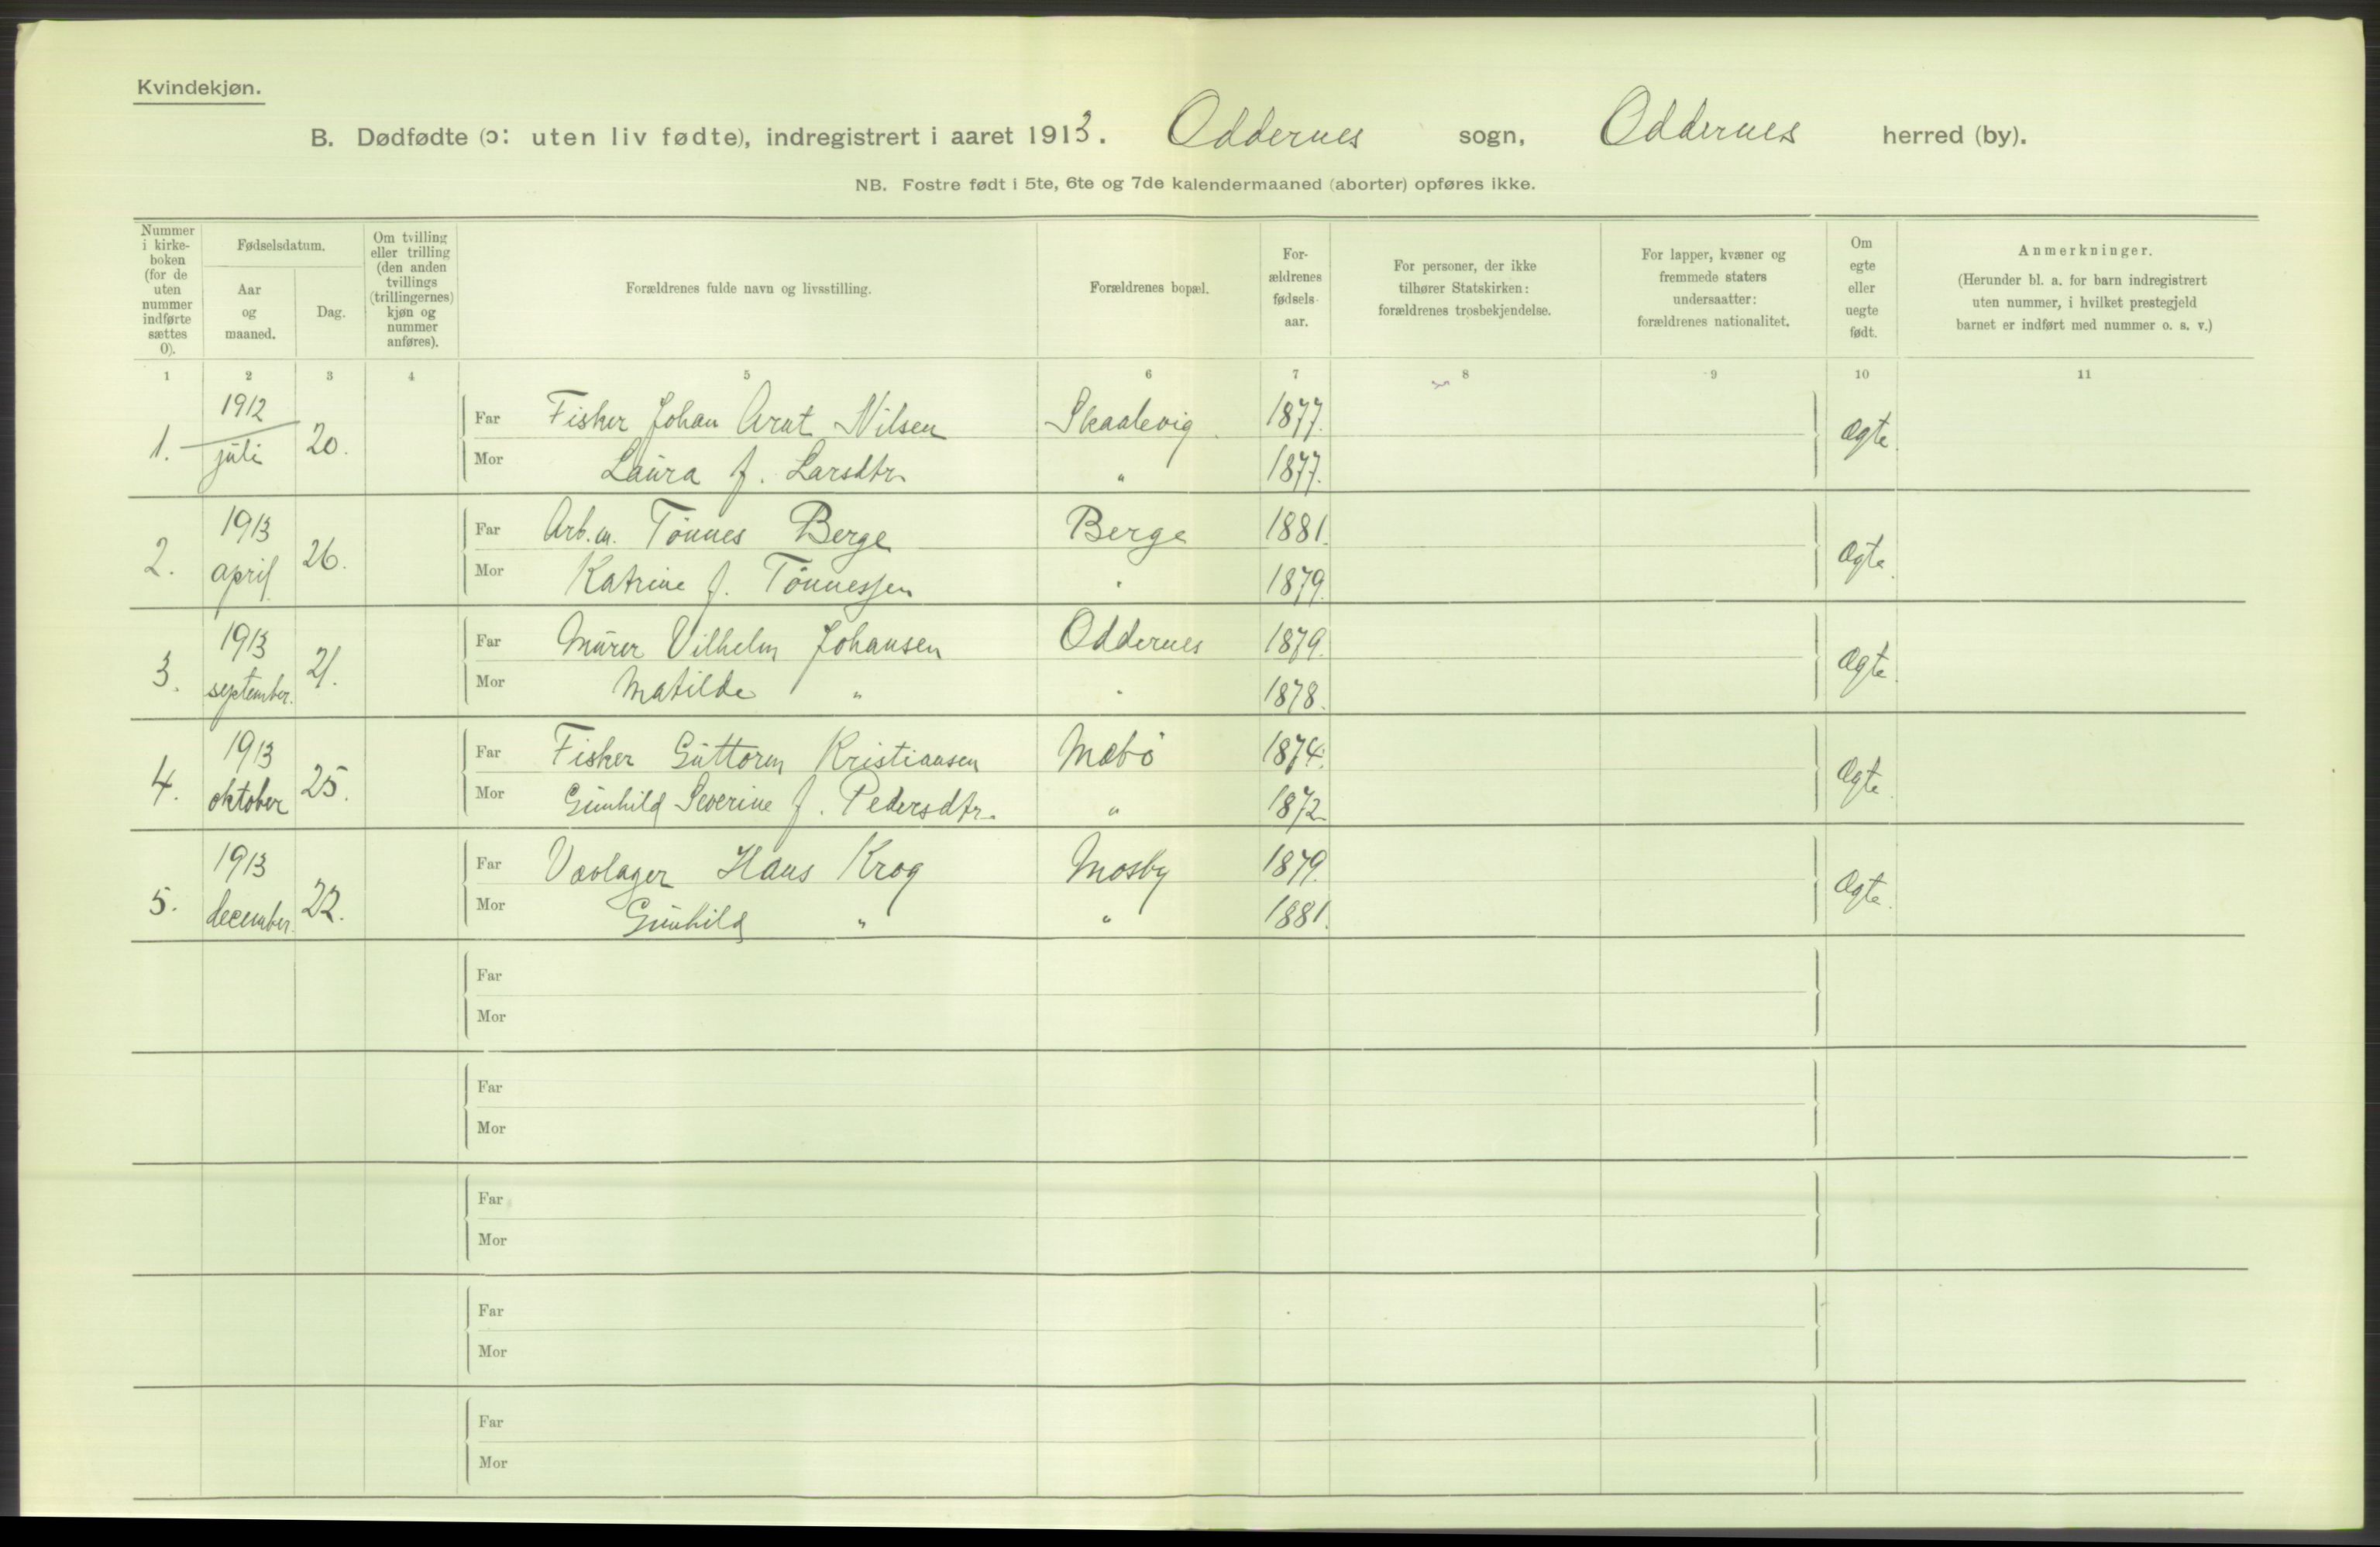 Kvindekjøn.
B. Dødfødte (ɔ: uten liv fødte), indregistrert i aaret 1913. Oddernes sogn, Oddernes herred (by).
NB. Fostre født i 5te, 6te og 7de kalendermaaned (aborter) opføres ikke.
Nummer i kirke-boken (for de uten nummer indførte sættes 0).
Fødselsdatum.
Aar og maaned.
Dag.
Om tvilling eller trilling (den anden tvillings (trillingernes) kjøn og nummer anføres).
Forældrenes fulde navn og livsstilling.
Forældrenes bopæl.
For-ældrenes fødsels-aar.
For personer, der ikke tilhører Statskirken: forældrenes trosbekjendelse.
For lapper, kvæner og fremmede staters undersaatter: forældrenes nationalitet.
Om egte eller uegte født.
Anmerkninger.
(Herunder bl. a. for barn indregistrert uten nummer, i hvilket prestegjeld barnet er indført med nummer o. s. v.)
1 2 3 4 5 6 7 8 9 10 11
1. 1912 juli 20. Far Fisker Johan Arnt Nilsen Skaalevig 1877. Ægte
Mor Laura f. Larsdtr. " 1877.
2. 1913 april 26. Far Arb.m. Tönnes Berge Berge 1881. Ægte.
Mor Katrine f. Tönnessen " 1879.
3. 1913 september. 21. Far Murer Vilhelm Johansen Oddernes 1879. Ægte.
Mor Matilde " " 1878.
4. 1913 oktober 25. Far Fisker Guttorm Kristiansen Mæbö 1874. Ægte.
Mor Gunhild Severine f. Pedersdtr. " 1872
5. 1913 december. 22. Far Hans Krog Mosby 1879. Ægte.
Mor Gunhild " " 1881.
Far
Mor
Far
Mor
Far
Mor
Far
Mor
Far
Mor